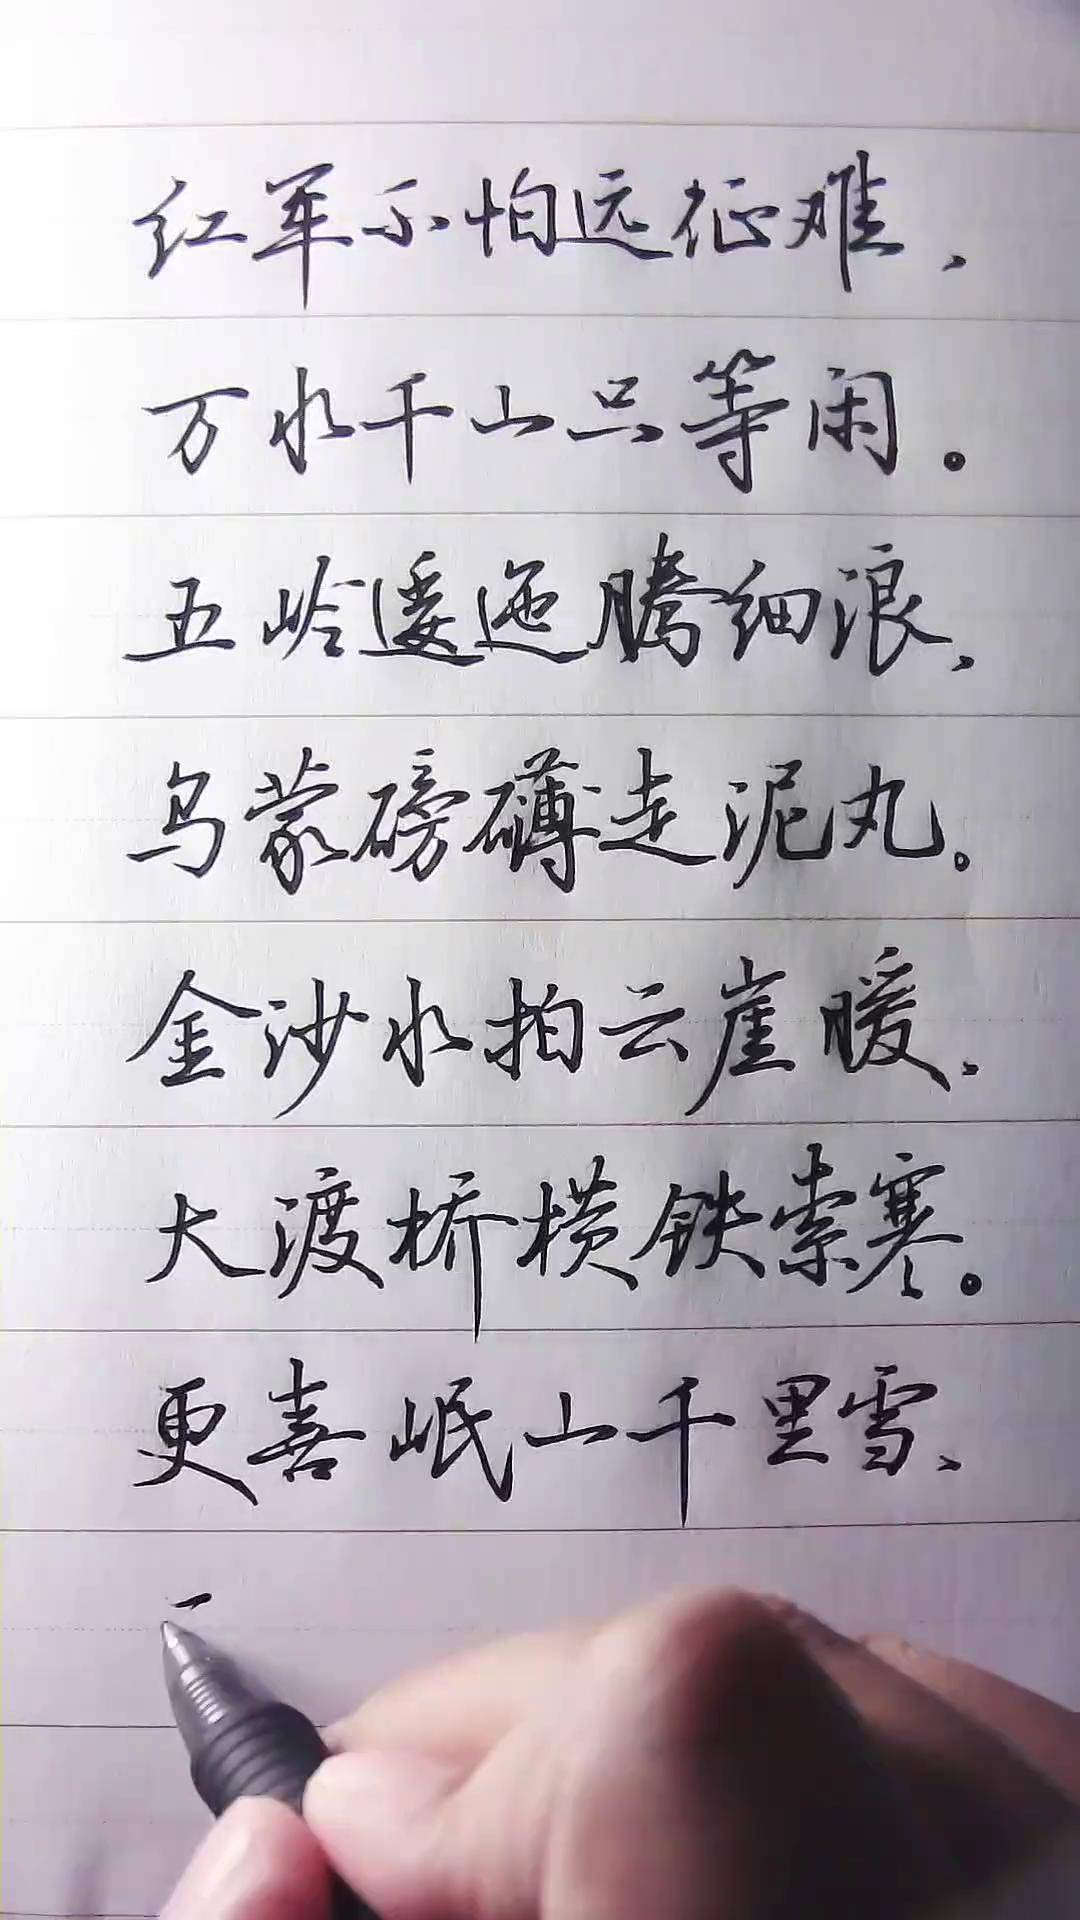 红军不怕远征难，
万水千山只等闲。
五岭逶迤腾细浪，
乌蒙磅礴走泥丸。
金沙水拍云崖暖，
大渡桥横铁索寒。
更喜岷山千里雪，